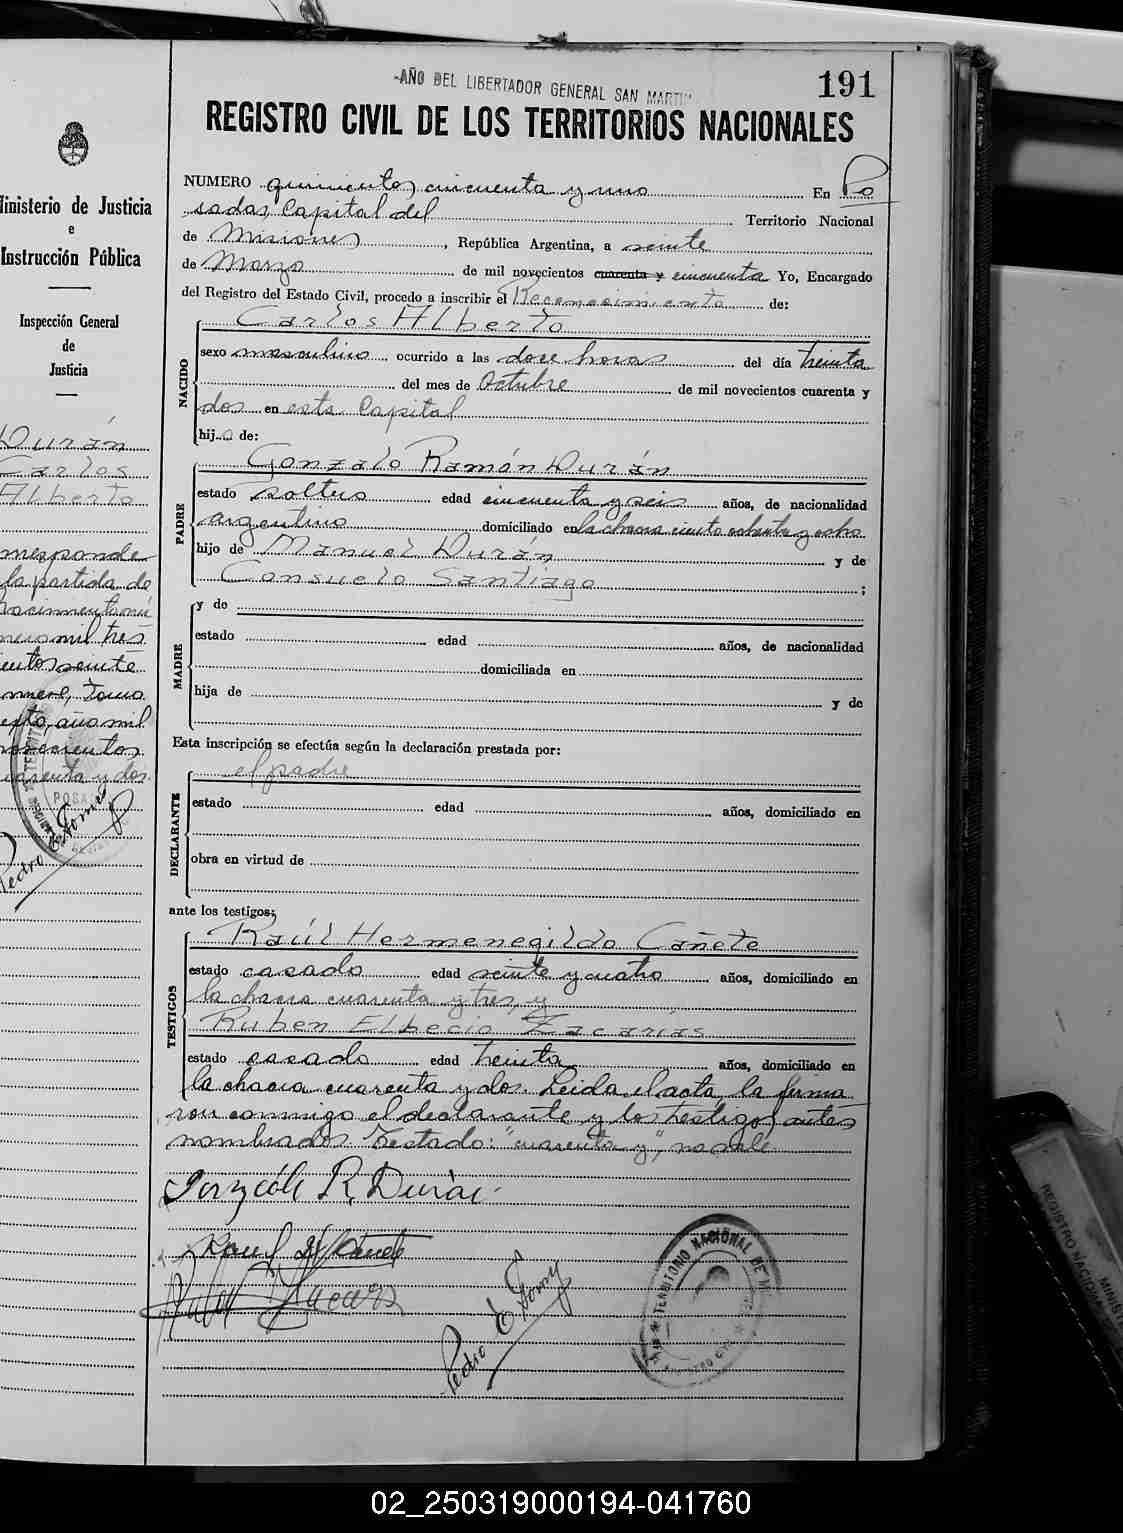 -AÑO DEL LIBERTADOR GENERAL SAN MARTIN
191
REGISTRO CIVIL DE LOS TERRITORIOS NACIONALES
Ministerio de Justicia
e
Instrucción Pública
Inspección General
de
Justicia
Durán
Carlos
Alberto
la partida de
mil tres
tomo
año mil
novecientos
cuarenta y dos.
NUMERO quinientos cincuenta y uno En Po
sadas, Capital del Territorio Nacional
de Misiones, República Argentina, a veinte
de Marzo de mil novecientos cuarenta y cincuenta Yo, Encargado
del Registro del Estado Civil, procedo a inscribir el Reconocimiento de:
Carlos Alberto
NACIDO
sexo masculino ocurrido a las doce horas del día treinta
del mes de Octubre de mil novecientos cuarenta y
dos en esta Capital
hijo de:
Gonzalo Ramón Durán
PADRE
estado soltero edad cincuenta y seis años, de nacionalidad
argentino domiciliado en la chacra ciento ochenta y ocho
hijo de Manuel Durán y de
Consuelo Santiago ;
MADRE
y de
estado edad años, de nacionalidad
domiciliada en
hija de y de
Esta inscripción se efectúa según la declaración prestada por:
el padre
DECLARANTE
estado edad años, domiciliado en
obra en virtud de
ante los testigos;
Raúl Hermenegildo Cañete
TESTIGOS
estado casado edad veinte y cuatro años, domiciliado en
la chacra cuarenta y tres, y
Ruben Elbecio Zacarías
estado casado edad treinta años, domiciliado en
la chacra cuarenta y dos. Leida el acta, la firma
ron conmigo el declarante y los testigos antes
nombrados. Testado: "cuarenta y", no vale
Gonzalo R. Durán
Raul H. Cañete
Pedro E. Gomez
TERRITORIO NACIONAL DE
REGISTRO NACIONAL
02_250319000194-041760